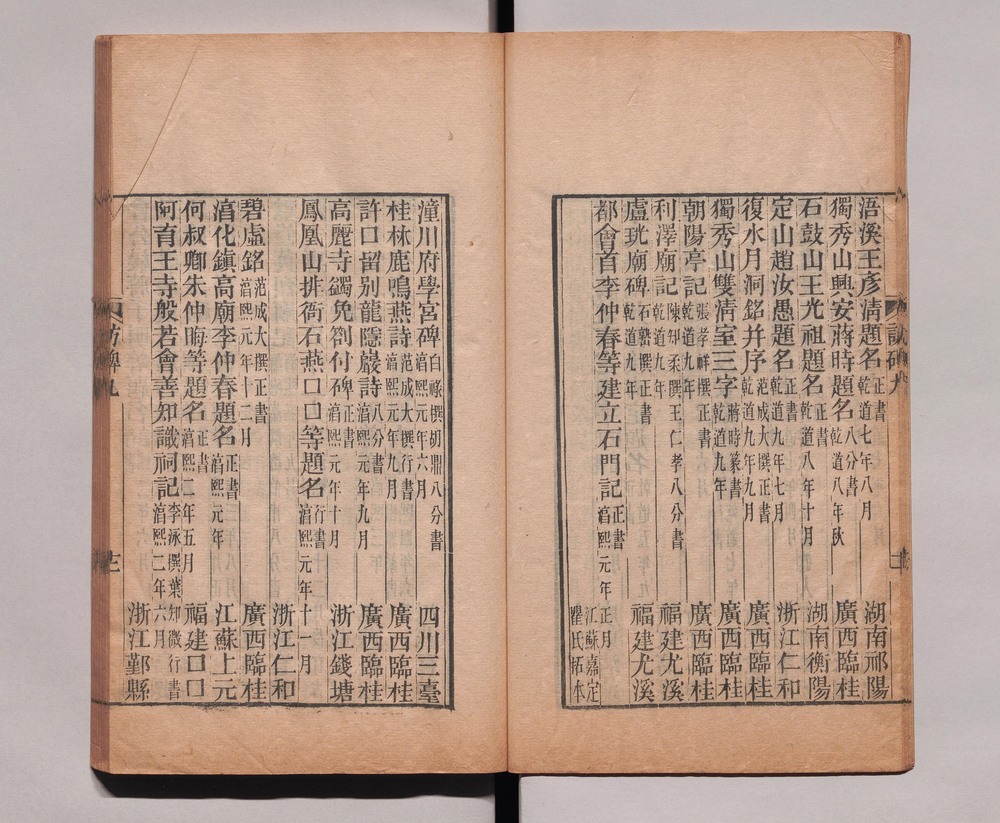 浯溪王彥淸題名 正書 乾道七年八月 湖南祁陽
獨秀山興安蔣時題名 八分書 乾道八年秋 廣西臨桂
石鼓山王光祖題名 正書 乾道八年十月 湖南衡陽
定山趙汝愚題名 正書 乾道九年七月 浙江仁和
復水月洞銘并序 范成大撰正書 乾道九年九月 廣西臨桂
獨秀山雙淸室三字 蔣時篆書 乾道九年 廣西臨桂
朝陽亭記 張孝祥撰正書 乾道九年 廣西臨桂
利澤廟記 陳知柔撰王仁孝八分書 乾道九年 福建尤溪
盧珖廟碑 石𡼖撰正書 乾道九年 福建尤溪
都會首李仲春等建立石門記 正書 淳熙元年正月 江蘇嘉定瞿氏拓本
潼川府學宮碑 白 撰胡鼎八分書 淳熙元年六月 四川三臺
桂林鹿鳴燕詩 范成大撰行書 淳熙元年九月 廣西臨桂
許口留別龍隱巖詩 八分書 淳熙元年九月 廣西臨桂
高麗寺蠲免劄付碑 正書 淳熙元年十月 浙江錢塘
鳳凰山排衙石燕口口等題名 行書 淳熙元年十一月
浙江仁和
碧虛銘 范成大撰正書 淳熙元年十二月 廣西臨桂
淳化鎭高廟李仲春題名 正書 淳熙元年 江蘇上元
何叔卿朱仲晦等題名 正書 淳熙二年五月 福建口口
阿育王寺般若會善知識祠記 李泳撰葉知微行書 淳熙二年六月 浙江鄞縣
訪碑九